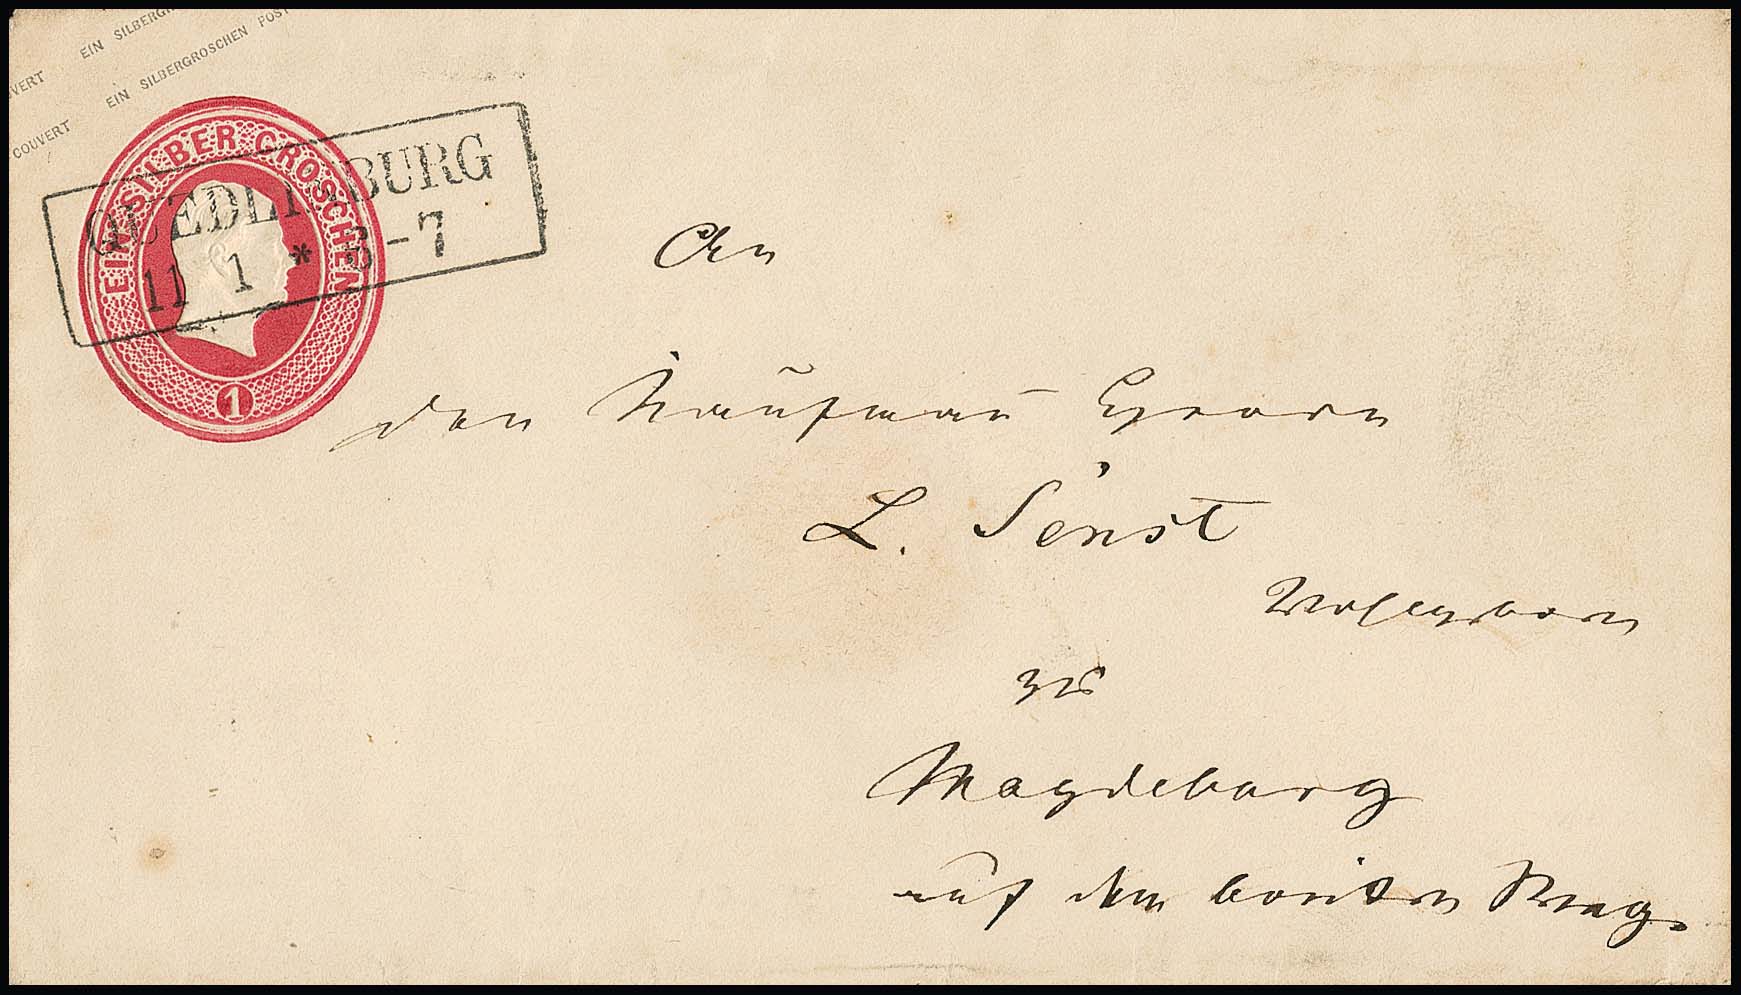 EIN SILBERGR
VERT EIN SILBERGROSCHEN POST
COUVERT
EIN SILBER GROSCHEN
1
QUEDLINBURG
11 1 * 6-7
An
den Kaufman̄ Herrn
L. Senst
zu
Magdeburg
auf dem breiten Weg.